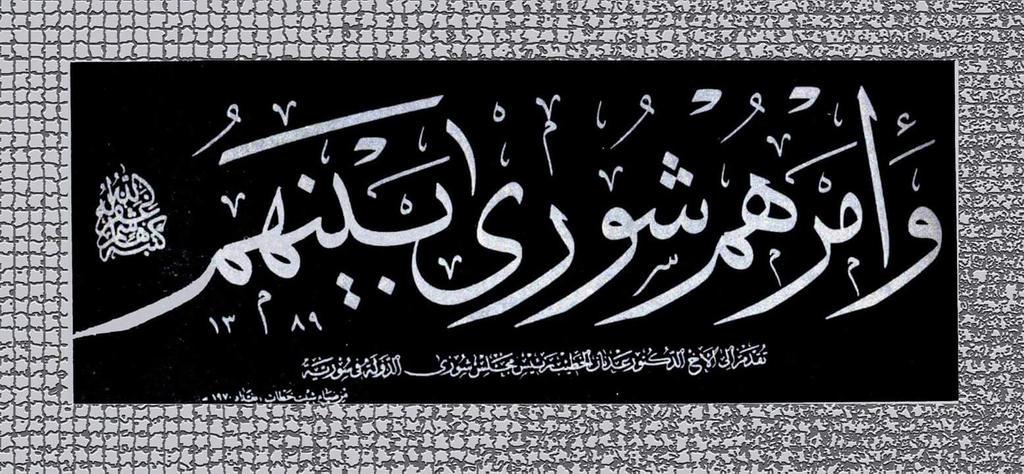 وَأَمْرُهُمْ شُورَىٰ بَيْنَهُمْ
١٣٨٩
تقدمة إلى الأخ الدكتور عدنان الخطيب رئيس مجلس شورى الدولة في سورية
بغداد ١٩٧٠ م